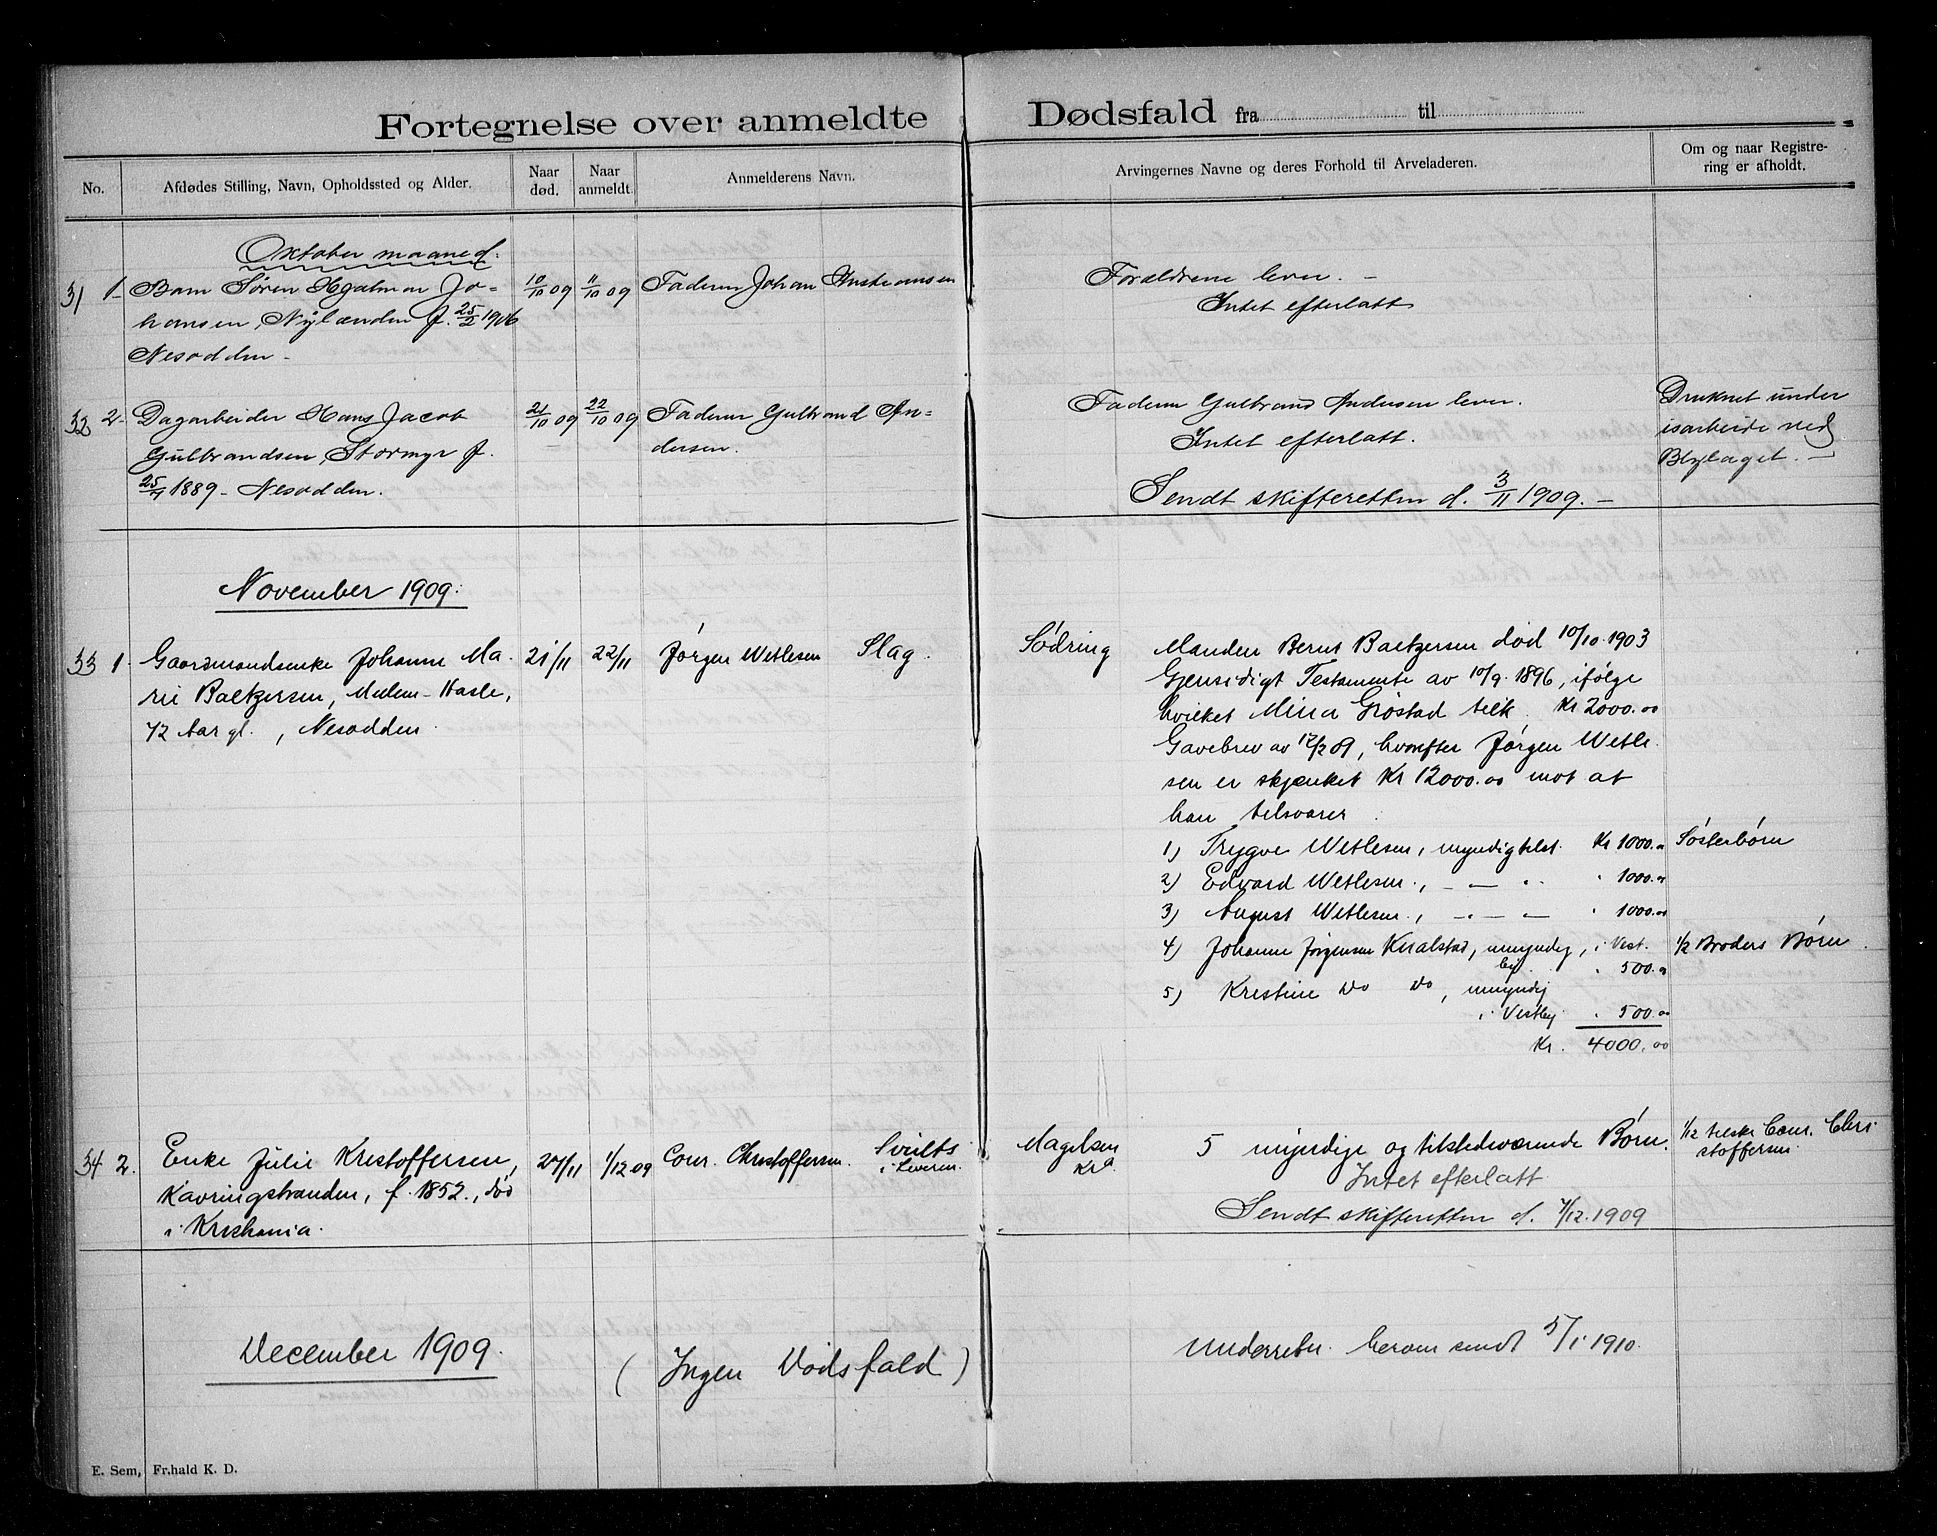 Fortegnelse over anmeldte Dødsfald fra til
No.
Afdødes Stilling, Navn, Opholdssted og Alder.
Naar død.
Naar anmeldt.
Anmelderens Navn.
Arvingernes Navne og deres Forhold til Arveladeren.
Om og naar Registre-
ring er afholdt.
Oktober maaned.
31 1- Barn Søren Hjalmar Jo- 10/10 09 11/10 09 Faderen Johan
hansen, Nylænden f. 25/2 1906
Nesodden -
Foreldrene lever. -
Intet efterlatt
32 2- Dagarbeider Hans Jacob 21/10 09 22/10 09 Faderen Gulbrand An-
Gulbrandsen, Stormyr f. dersen.
25/4 1889 - Nesodden.
Faderen Gulbrand Andersen lever.
Intet efterlatt.
Sendt skifteretten d. 3/11 1909. -
Druknet under
isarbeide ved
Blylaget. -
November 1909.
33 1. Gaardmandsenke Johanne Ma- 21/11 22/11 Jørgen Wetlesen Slag.
rie Baltzersen, Mellem-Hasle,
72 Aar gl., Nesodden.
Södring Manden Bernt Baltzersen död 10/10.1903
Gjensidigt Testamente av 10/9.1896, ifølge
hvilket Mina Gröstad tilk. Kr 2000.00
Gavebrev av 12/2 09, hvorefter Jørgen Wetle-
sen er skjænket Kr 12000.00 mot at
han tilsvarer
1) Trygve Wetlesen, myndig tilst. Kr 1000.00 Søsterbørn
2) Edvard Wetlesen., - — " " 1000.00
3) August Wetlesen., —"— — " 1000.00
4) Johanne Jørgensen Knalstad, umyndig, i Vest- 1/2 Broders Børn.
by " 500.00
5) Kristine Do Do, umyndig
i Vestby " 500.00
Kr. 4000.00
34 2. Enke Julie Kristoffersen, 27/11 1/12 09 Conr. Christoffersen.
Kavringstranden, f. 1852., död
i Kristiania.
Magelsen
Kra
5 myndige og tilstedeværende Børn.
Intet efterlatt
Sendt skifteretten d. 7/12.1909
1/12 tilske Conr. Chri-
stoffersen.
December 1909. (Ingen Dødsfald)
Underretn. herom sendt 5/1 1910.
E. Sem, Fr.hald K. D.